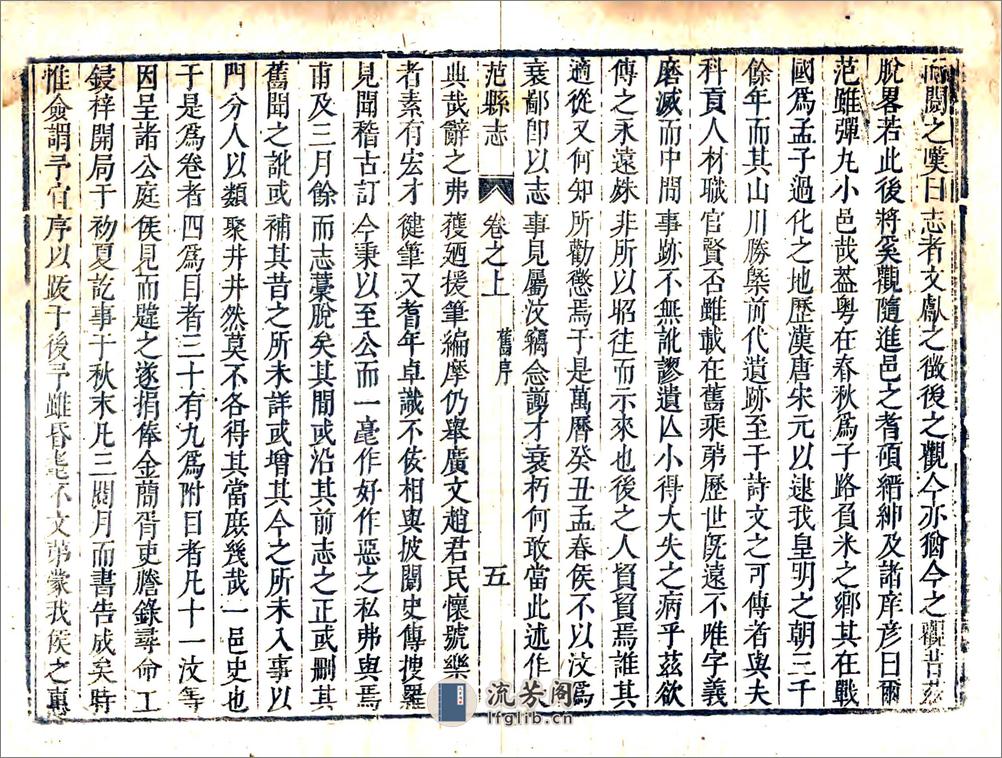 而閱之嘆曰志者文獻之徵後之觀今亦猶今之觀昔茲
脫畧若此後將奚觀隨進邑之耆碩縉紳及諸庠彦曰爾
范雖彈丸小邑哉葢粤在春秋爲子路負米之鄉其在戰
國爲孟子過化之地歷漢唐宋元以逮我皇明之朝三千
餘年而其山川勝槩前代遺跡至于詩文之可傳者與夫
科貢人材職官賢否雖載在舊乘第歷世旣遠不唯字義
磨滅而中間事跡不無訛謬遺亾小得大失之病乎茲欲
傳之永遠殊非所以昭往而示來也後之人貿貿焉誰其
適從又何知所勸懲焉于是萬曆癸丑孟春侯不以汶爲
衰鄙卽以志事見屬汶竊念謭才衰朽何敢當此述作之
范縣志 卷之上 舊序 五
典哉辭之弗獲廼援筆編摩仍舉廣文趙君民懷號樂
者素有宏才健筆又耆年卓識不佞相與披閱史傳搜羅
見聞稽古訂今秉以至公而一毫作好作惡之私弗與焉
甫及三月餘而志藁脫矣其間或沿其前志之正或刪其
舊聞之訛或補其昔之所未詳或增其今之所未入事以
門分人以類聚井井然莫不各得其當庶幾哉一邑史也
于是爲卷者四爲目者三十有九爲附目者凡十一汶等
因呈諸公庭侯見而韙之遂捐俸金蕳胥吏謄錄尋命工
鋟梓開局于初夏訖事于秋末凡三閱月而書告成矣時
惟僉謂予宜序以跋于後予雖昏耄不文第蒙我侯之惠
流芳阁
lfglib.cn